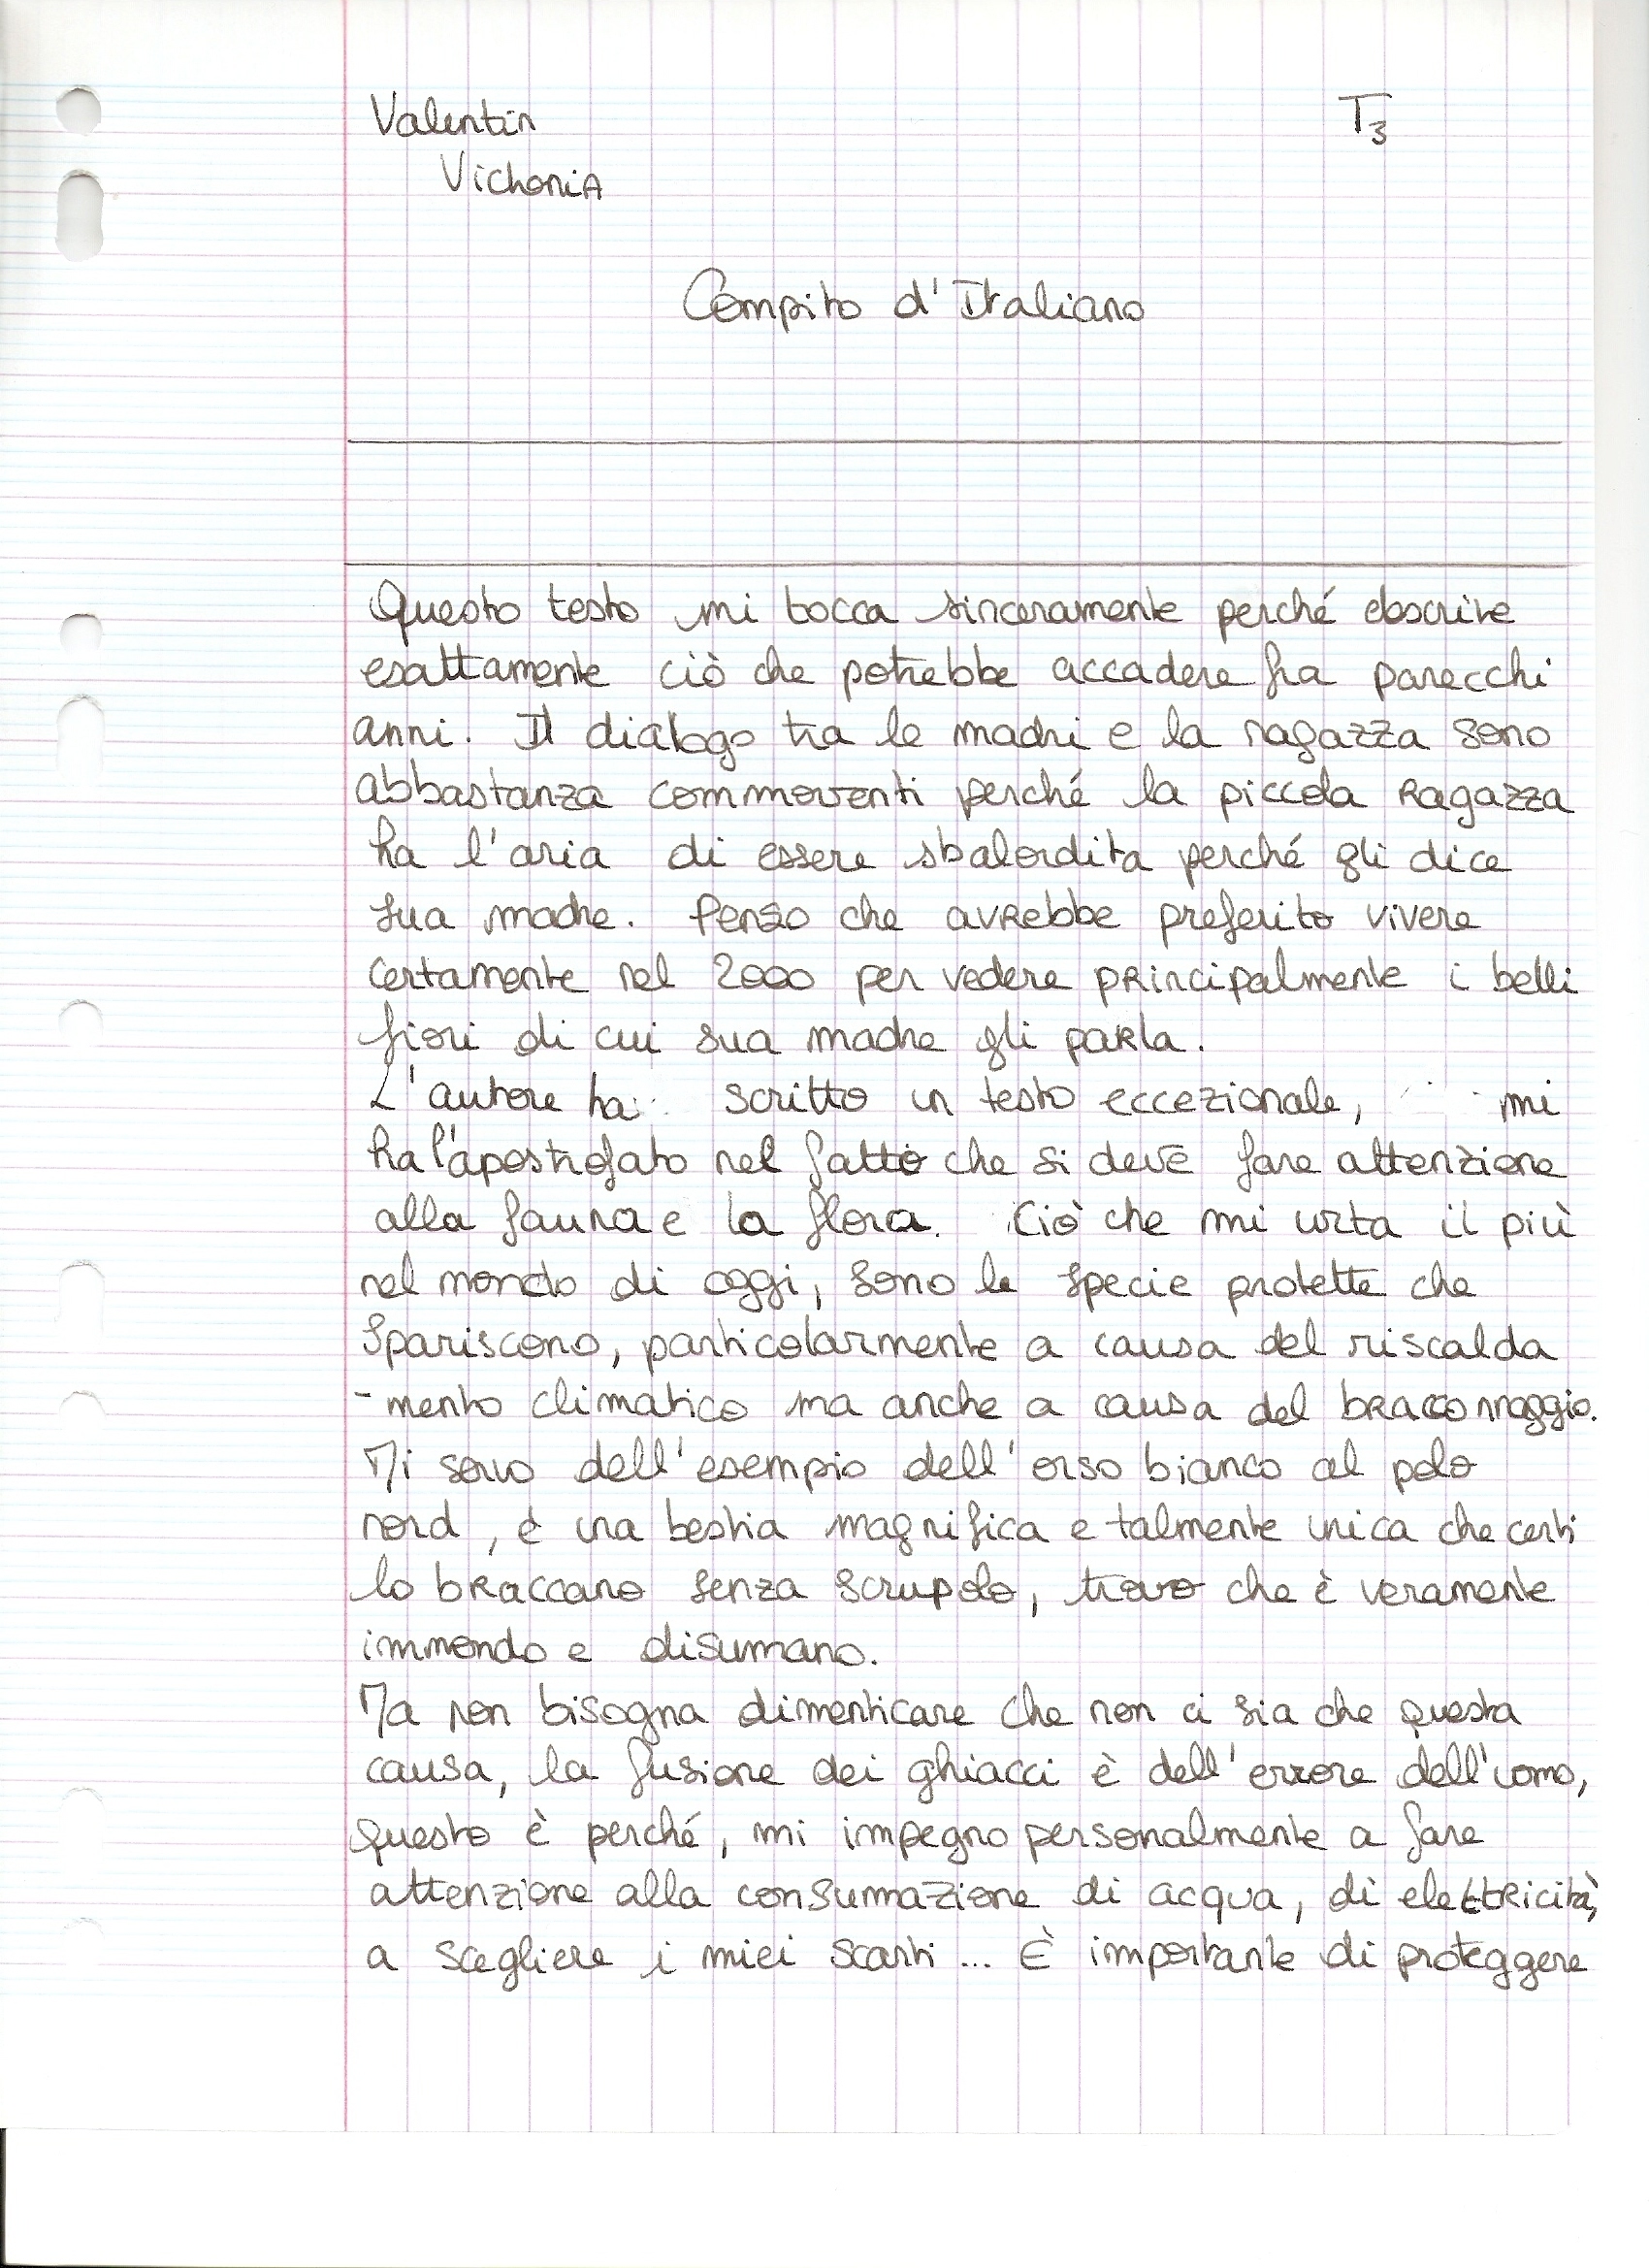 Valentin
T3
Vichonia
Compito d'Italiano
Questo testo mi tocca sinceramente perché descrive
esattamente ciò che potrebbe accadere fra parecchi
anni. Il dialogo tra le madri e la ragazza sono
abbastanza commoventi perché la piccola Ragazza
ha l'aria di essere sbalordita perché gli dice
sua madre. Penso che avrebbe preferito vivere
certamente nel 2000 per vedere principalmente i belli
fiori di cui sua madre gli parla.
L'autore ha scritto un testo eccezionale, mi
ha l'apostrofato nel fatto che si deve fare attenzione
alla fauna e la flora. Ciò che mi urta il più
nel mondo di oggi, sono le specie protette che
spariscono, particolarmente a causa del riscalda
-mento climatico ma anche a causa del bracconnaggio.
Mi servo dell'esempio dell'orso bianco al polo
nord, è una bestia magnifica e talmente unica che certi
lo braccano senza scrupolo, trovo che è veramente
immondo e disumano.
Ma non bisogna dimenticare che non ci sia che questa
causa, la fusione dei ghiacci è dell'errore dell'uomo,
questo è perché, mi impegno personalmente a fare
attenzione alla consumazione di acqua, di elettricità,
a scegliere i miei scarti... È importante di proteggere